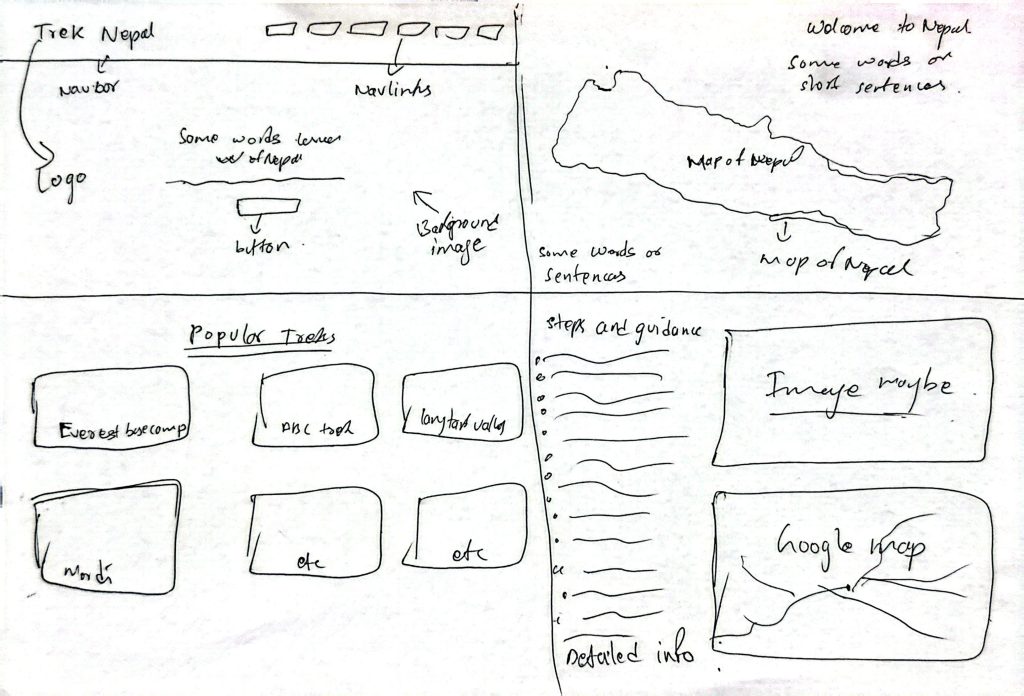 Trek Nepal
Navbar
Navlinks
Logo
Some words
of Nepal
button
Background
image
Welcome to Nepal
Some words or
short sentences.
Map of Nepal
Map of Nepal
Some words or
sentences
Popular Treks
Everest basecamp
ABC trek
langtang valley
Mardi
etc
etc
steps and guidance
Image maybe
Google map
Detailed info